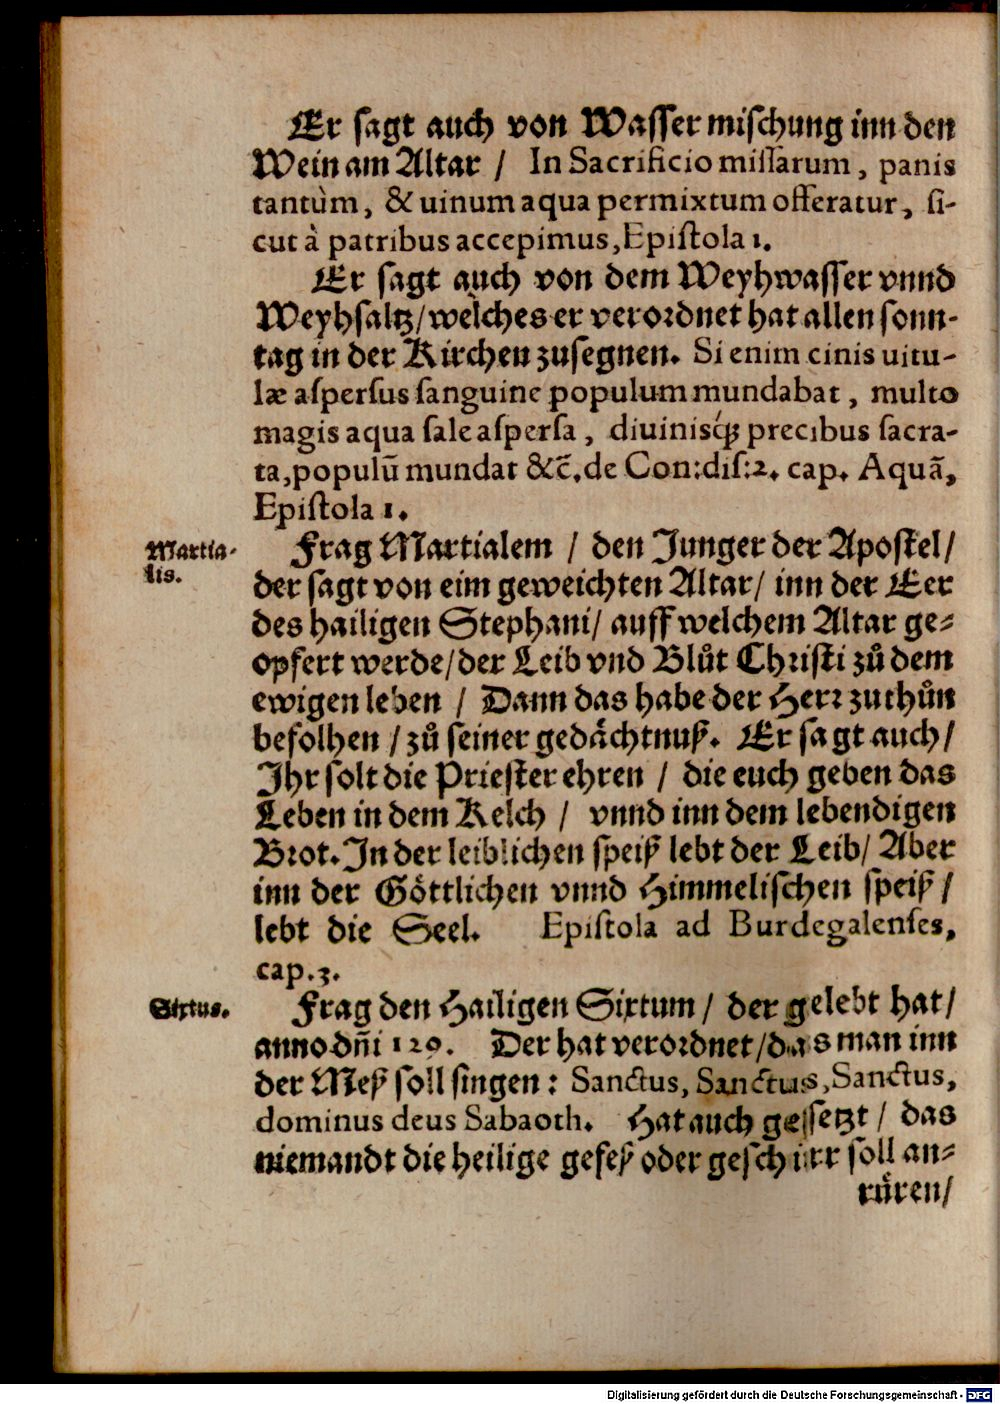 Er sagt auch von Wasser mischung inn den
Wein am Altar / In Sacrificio missarum, panis
tantùm, & uinum aqua permixtum offeratur, si-
cut à patribus accepimus, Epistola 1.
Er sagt auch von dem Weyhwasser vnnd
Weyhsaltz/welches er verordnet hat allen sonn-
tag in der Kirchen zusegnen. Si enim cinis uitu-
læ aspersus sanguine populum mundabat, multo
magis aqua sale aspersa, diuinisq́ꝫ precibus sacra-
ta, populū mundat &c̄. de Con: dis: 2. cap. Aquā,
Epistola 1.
Martia-
lis.
Frag Martialem / den Junger der Apostel/
der sagt von eim geweichten Altar/ inn der Eer
des hailigen Stephani/ auff welchem Altar ge-
opfert werde/der Leib vnd Blůt Christi zů dem
ewigen leben / Dann das habe der Herr zuthůn
befolhen / zů seiner gedåchtnuß. Er sagt auch/
Ihr solt die Priester ehren / die euch geben das
Leben in dem Kelch / vnnd inn dem lebendigen
Brot. In der leiblichen speiß lebt der Leib/ Aber
inn der Göttlichen vnnd Himmelischen speiß /
lebt die Seel. Epistola ad Burdegalenses,
cap. 3.
Sixtus.
Frag den Hailigen Sixtum / der gelebt hat/
anno dn̄i 129. Der hat verordnet/das man inn
der Meß soll singen: Sanctus, Sanctus, Sanctus,
dominus deus Sabaoth. Hat auch gesetzt / das
niemandt die heilige gefeß oder geschirr soll an-
růren/
Digitalisierung gefördert durch die Deutsche Forschungsgemeinschaft - DFG